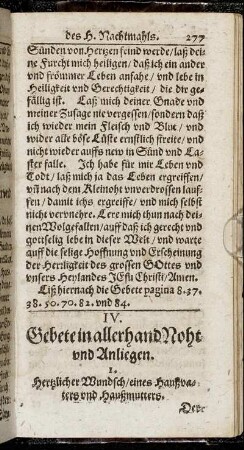 des H. Nachtmahls. 277
Sünden von Hertzen feind werde/ laß dei-
ne Furcht mich heiligen/ daß ich ein ander
vnd frömmer Leben anfahe/ vnd lebe in
Heiligkeit vnd Gerechtigkeit/ die dir ge-
fällig ist. Laß mich deiner Gnade vnd
meiner Zusage nie vergessen/ sondern daß
ich wieder mein Fleisch vnd Blut/ vnd
wider alle böse Lüste ernstlich streite/ vnd
nicht wieder auffs new in Sünd vnd La-
ster falle. Ich habe für mir Leben vnd
Todt/ laß mich ja das Leben ergreiffen/
vñ nach dem Kleinoht vnverdrossen lauf-
fen/ damit ichs ergreiffe/ vnd mich selbst
nicht versäume. Lere mich thun nach dei-
nen Wolgefallen/ auff daß ich gerecht vnd
gottselig lebe in dieser Welt/ vnd warte
auff die selige Hoffnung vnd Erscheinung
der Herrligkeit des grossen GOttes vnd
vnsers Heylandes JEsu Christi/ Amen.
Liß hiernach die Gebete pagina 8. 37.
38. 50. 70. 82. vnd 84.
IV.
Gebete in allerhand Noht
vnd Anliegen.
1.
Hertzlicher Wundsch/ eines Haußva-
ters vnd Haußmutters.